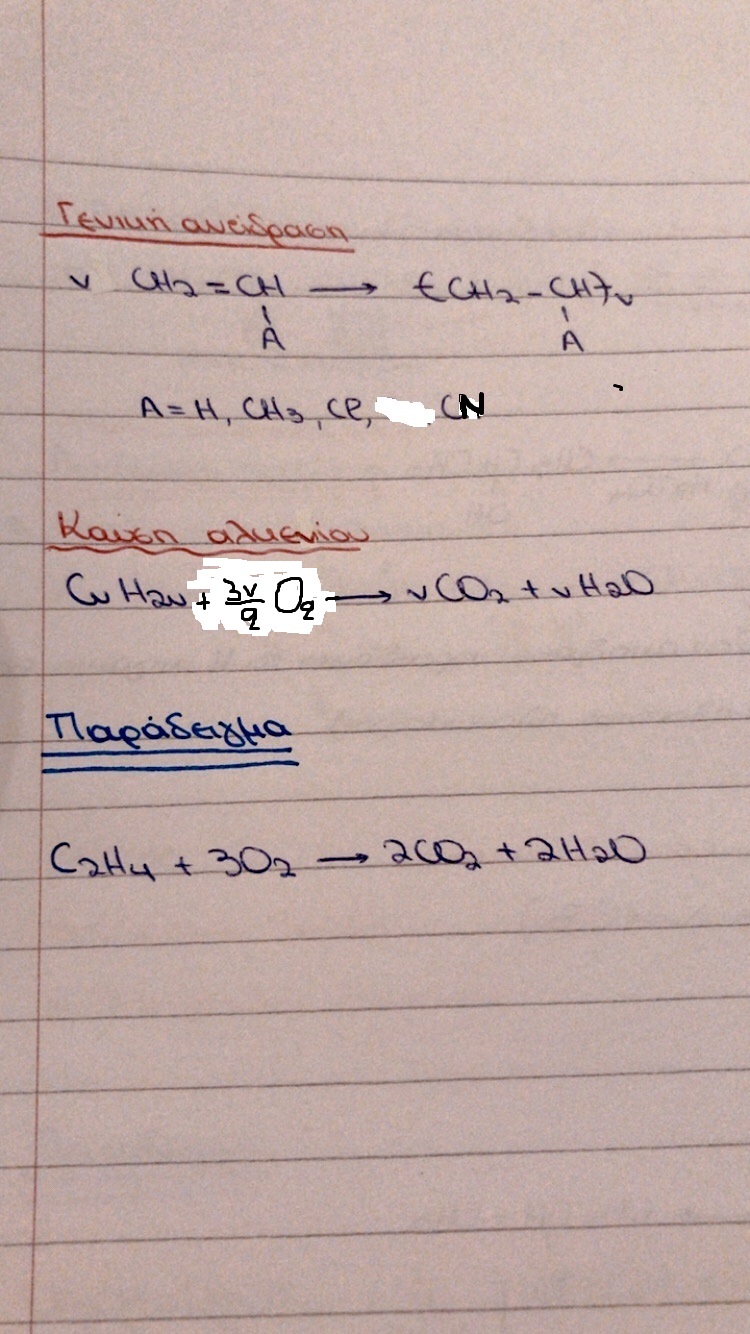 Γενική αντίδραση
ν CH2 = CH → (CH2 - CH)ν
A A
A = H, CH3, Cl, CN
Καύση αλκενίου
CνH2ν + 3ν/2 O2 → νCO2 + νH2O
Παράδειγμα
C2H4 + 3O2 → 2CO2 + 2H2O